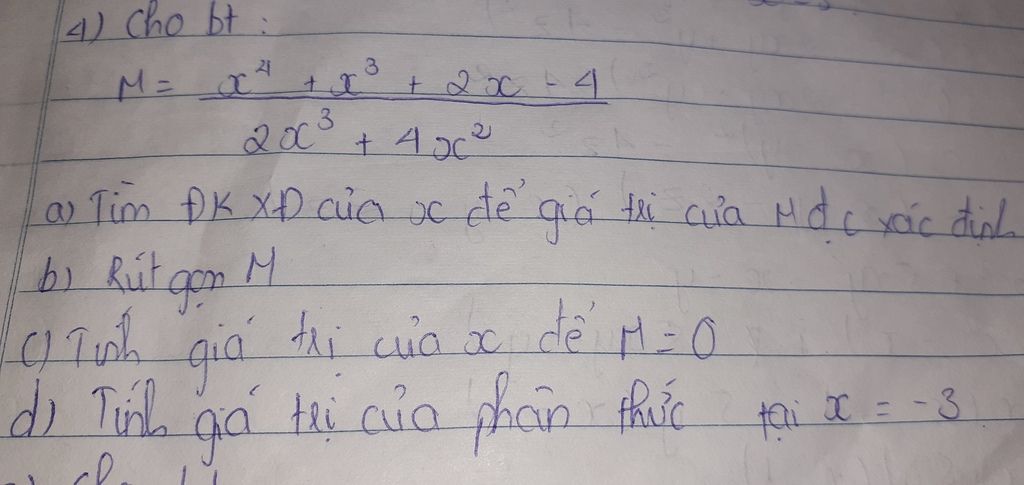 4) Cho bt :
M = x⁴ + x³ + 2x - 4
2x³ + 4x²
a) Tìm ĐKXĐ của x để giá trị của M đc xác định
b) Rút gọn M
c) Tính giá trị của x để M = 0
d) Tính giá trị của phân thức tại x = -3